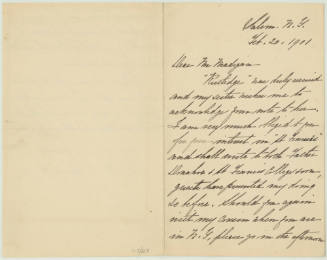 Salem N.Y.
Feb. 20. 1901
Dear Mr
"Rutledge" was duly received
and my sister wishes me to
acknowledge your note to her.
I am very much obliged to you
for your interest in St Francis
and shall write to both Father
and St Francis College soon,
have prevented my doing
so before. Should you again
visit my cousin when you are
in N.Y. please go in the afternoon